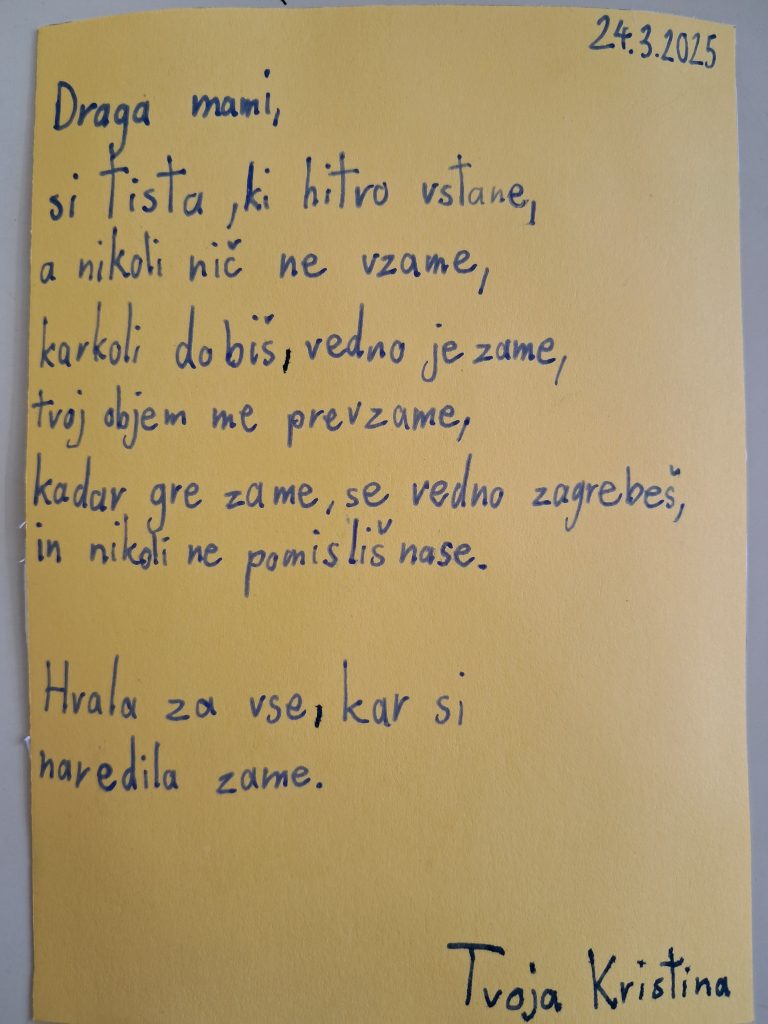 24.3.2025
Draga mami,
si tista, ki hitro vstane,
a nikoli nič ne vzame,
karkoli dobiš, vedno je zame,
tvoj objem me prevzame,
kadar gre zame, se vedno zagrebeš,
in nikoli ne pomisliš nase.
Hvala za vse, kar si
naredila zame.
Tvoja Kristina